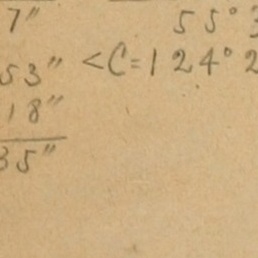 7″
55°
53″ <C=124° 2
18″
35″